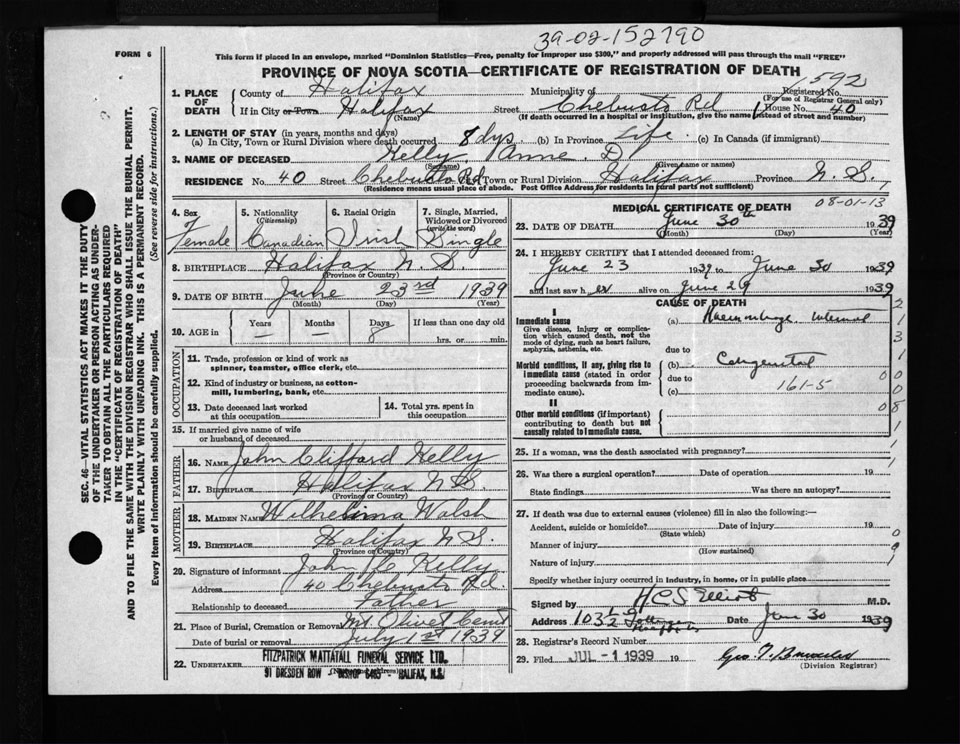 39-02-152790
FORM 6
This form if placed in an envelope, marked "Dominion Statistics—Free, penalty for improper use $300," and properly addressed will pass through the mail "FREE"
PROVINCE OF NOVA SCOTIA—CERTIFICATE OF REGISTRATION OF DEATH
1592
1. PLACE OF DEATH County of Halifax Municipality of Registered No.
(For use of Registrar General only)
If in City or Town Halifax Street Chebucto Rd House No. 40
(Name) (If death occurred in a hospital or institution, give the name instead of street and number)
2. LENGTH OF STAY (in years, months and days)
(a) In City, Town or Rural Division where death occurred 8 dys (b) In Province Life (c) In Canada (if immigrant)
3. NAME OF DECEASED Kelly Anne D
(Surname) (Given name or names)
RESIDENCE No. 40 Street Chebucto Rd City, Town or Rural Division Halifax Province N.S.
(Residence means usual place of abode. Post Office Address for residents in rural parts not sufficient)
4. Sex Female
5. Nationality (Citizenship) Canadian
6. Racial Origin Irish
7. Single, Married, Widowed or Divorced (write the word) Single
8. BIRTHPLACE Halifax N.S.
(Province or Country)
9. DATE OF BIRTH June 23rd 1939
(Month) (Day) (Year)
10. AGE in Years — Months — Days 8 If less than one day old hrs. or min.
OCCUPATION
11. Trade, profession or kind of work as spinner, teamster, office clerk, etc.
12. Kind of industry or business, as cotton-mill, lumbering, bank, etc.
13. Date deceased last worked at this occupation
14. Total yrs. spent in this occupation
15. If married give name of wife or husband of deceased
FATHER
16. Name John Clifford Kelly
17. Birthplace Halifax N.S.
(Province or Country)
MOTHER
18. Maiden Name Wilhelmina Walsh
19. Birthplace Halifax N.S.
(Province or Country)
20. Signature of informant John C Kelly
Address 40 Chebucto Rd.
Relationship to deceased Father
21. Place of Burial, Cremation or Removal Mt Olivet Cemt
Date of burial or removal July 1st 1939
22. UNDERTAKER FITZPATRICK MATTATALL FUNERAL SERVICE LTD.
91 DRESDEN ROW BISHOP 6485 - HALIFAX, N.S.
MEDICAL CERTIFICATE OF DEATH 08-01-13
23. DATE OF DEATH June 30th 1939
(Month) (Day) (Year)
24. I HEREBY CERTIFY that I attended deceased from:
June 23 1939 to June 30 1939
and last saw her alive on June 29 1939
CAUSE OF DEATH
I
Immediate cause (a) Haemorrhage Internal
Give disease, injury or complication which caused death, not the mode of dying, such as heart failure, asphyxia, asthenia, etc.
due to
Morbid conditions, if any, giving rise to immediate cause (stated in order proceeding backwards from immediate cause).
(b) Congenital
due to
(c) 161-5
II
Other morbid conditions (if important) contributing to death but not causally related to immediate cause.
25. If a woman, was the death associated with pregnancy?
26. Was there a surgical operation? Date of operation 19
State findings Was there an autopsy?
27. If death was due to external causes (violence) fill in also the following:—
Accident, suicide or homicide? Date of injury 19
(State which)
Manner of injury
(How sustained)
Nature of injury
Specify whether injury occurred in industry, in home, or in public place
Signed by H C S Elliot M.D.
Address 103 Date June 30 1939
28. Registrar's Record Number
29. Filed JUL - 1 1939 19
(Division Registrar)
SEC. 46—VITAL STATISTICS ACT MAKES IT THE DUTY
OF THE UNDERTAKER OR PERSON ACTING AS UNDER-
TAKER TO OBTAIN ALL THE PARTICULARS REQUIRED
IN THE "CERTIFICATE OF REGISTRATION OF DEATH"
AND TO FILE THE SAME WITH THE DIVISION REGISTRAR WHO SHALL ISSUE THE BURIAL PERMIT.
WRITE PLAINLY WITH UNFADING INK. THIS IS A PERMANENT RECORD.
Every item of information should be carefully supplied. (See reverse side for instructions.)